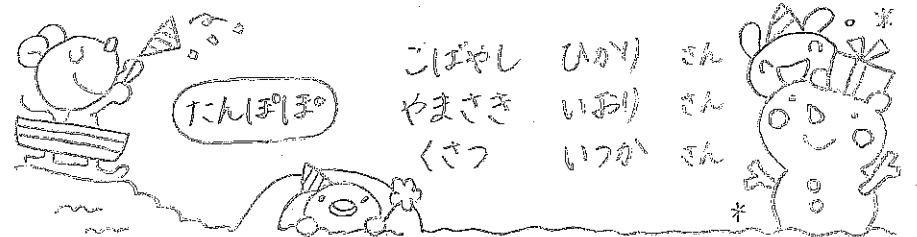 たんぽぽ
こばやし ひかり さん
やまさき いおり さん
くさつ いつか さん